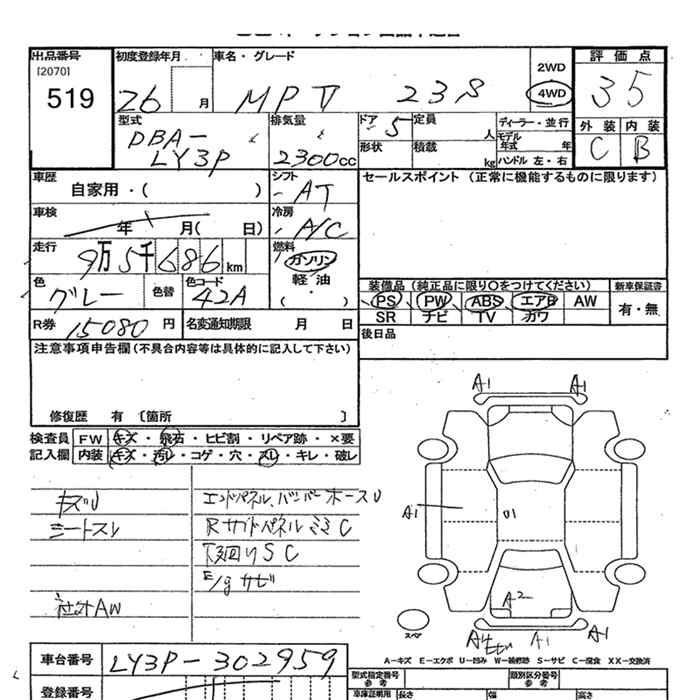 出品番号 初度登録年月 車名・グレード 評価点
[2070] 2WD
519 26 月 MPV 23S 4WD 35
型式 排気量 ドア 定員 ディーラー・並行 外装 内装
DBA- 5 人 モデル年式 年 C B
LY3P 2300cc 形状 積載 kg ハンドル 左・右
車歴 シフト セールスポイント (正常に機能するものに限ります)
自家用・( ) AT
車検 冷房
年 月( 日) A/C
走行 燃料
9万5千686km ガソリン
色 色替 色コード 軽油 装備品 (純正品に限り○をつけてください) 新車保証書
グレー 42A ( )・ PS PW ABS エアB AW 有・無
R券 15080円 名変通知期限 月 日 SR ナビ TV カワ
注意事項申告欄 (不具合内容等は具体的に記入して下さい) 後日品
修復歴 有 [箇所 ]
検査員 FW キズ・飛石・ヒビ割・リペア跡・×要
記入欄 内装 キズ・汚レ・コゲ・穴・スレ・キレ・破レ
A1 A1
キズU エンドパネル、バンパーホースU
シートスレ
A1 U1
下廻りSC
E/gサビ
社外AW
A2
スペア A1 A1
A-キズ E-エクボ U-凹み W-補修跡 S-サビ C-腐食 XX-交換済
車台番号 LY3P-302959 型式指定番号 参考 類別区分番号 参考
登録番号 車庫証明用 長さ 幅 高さ